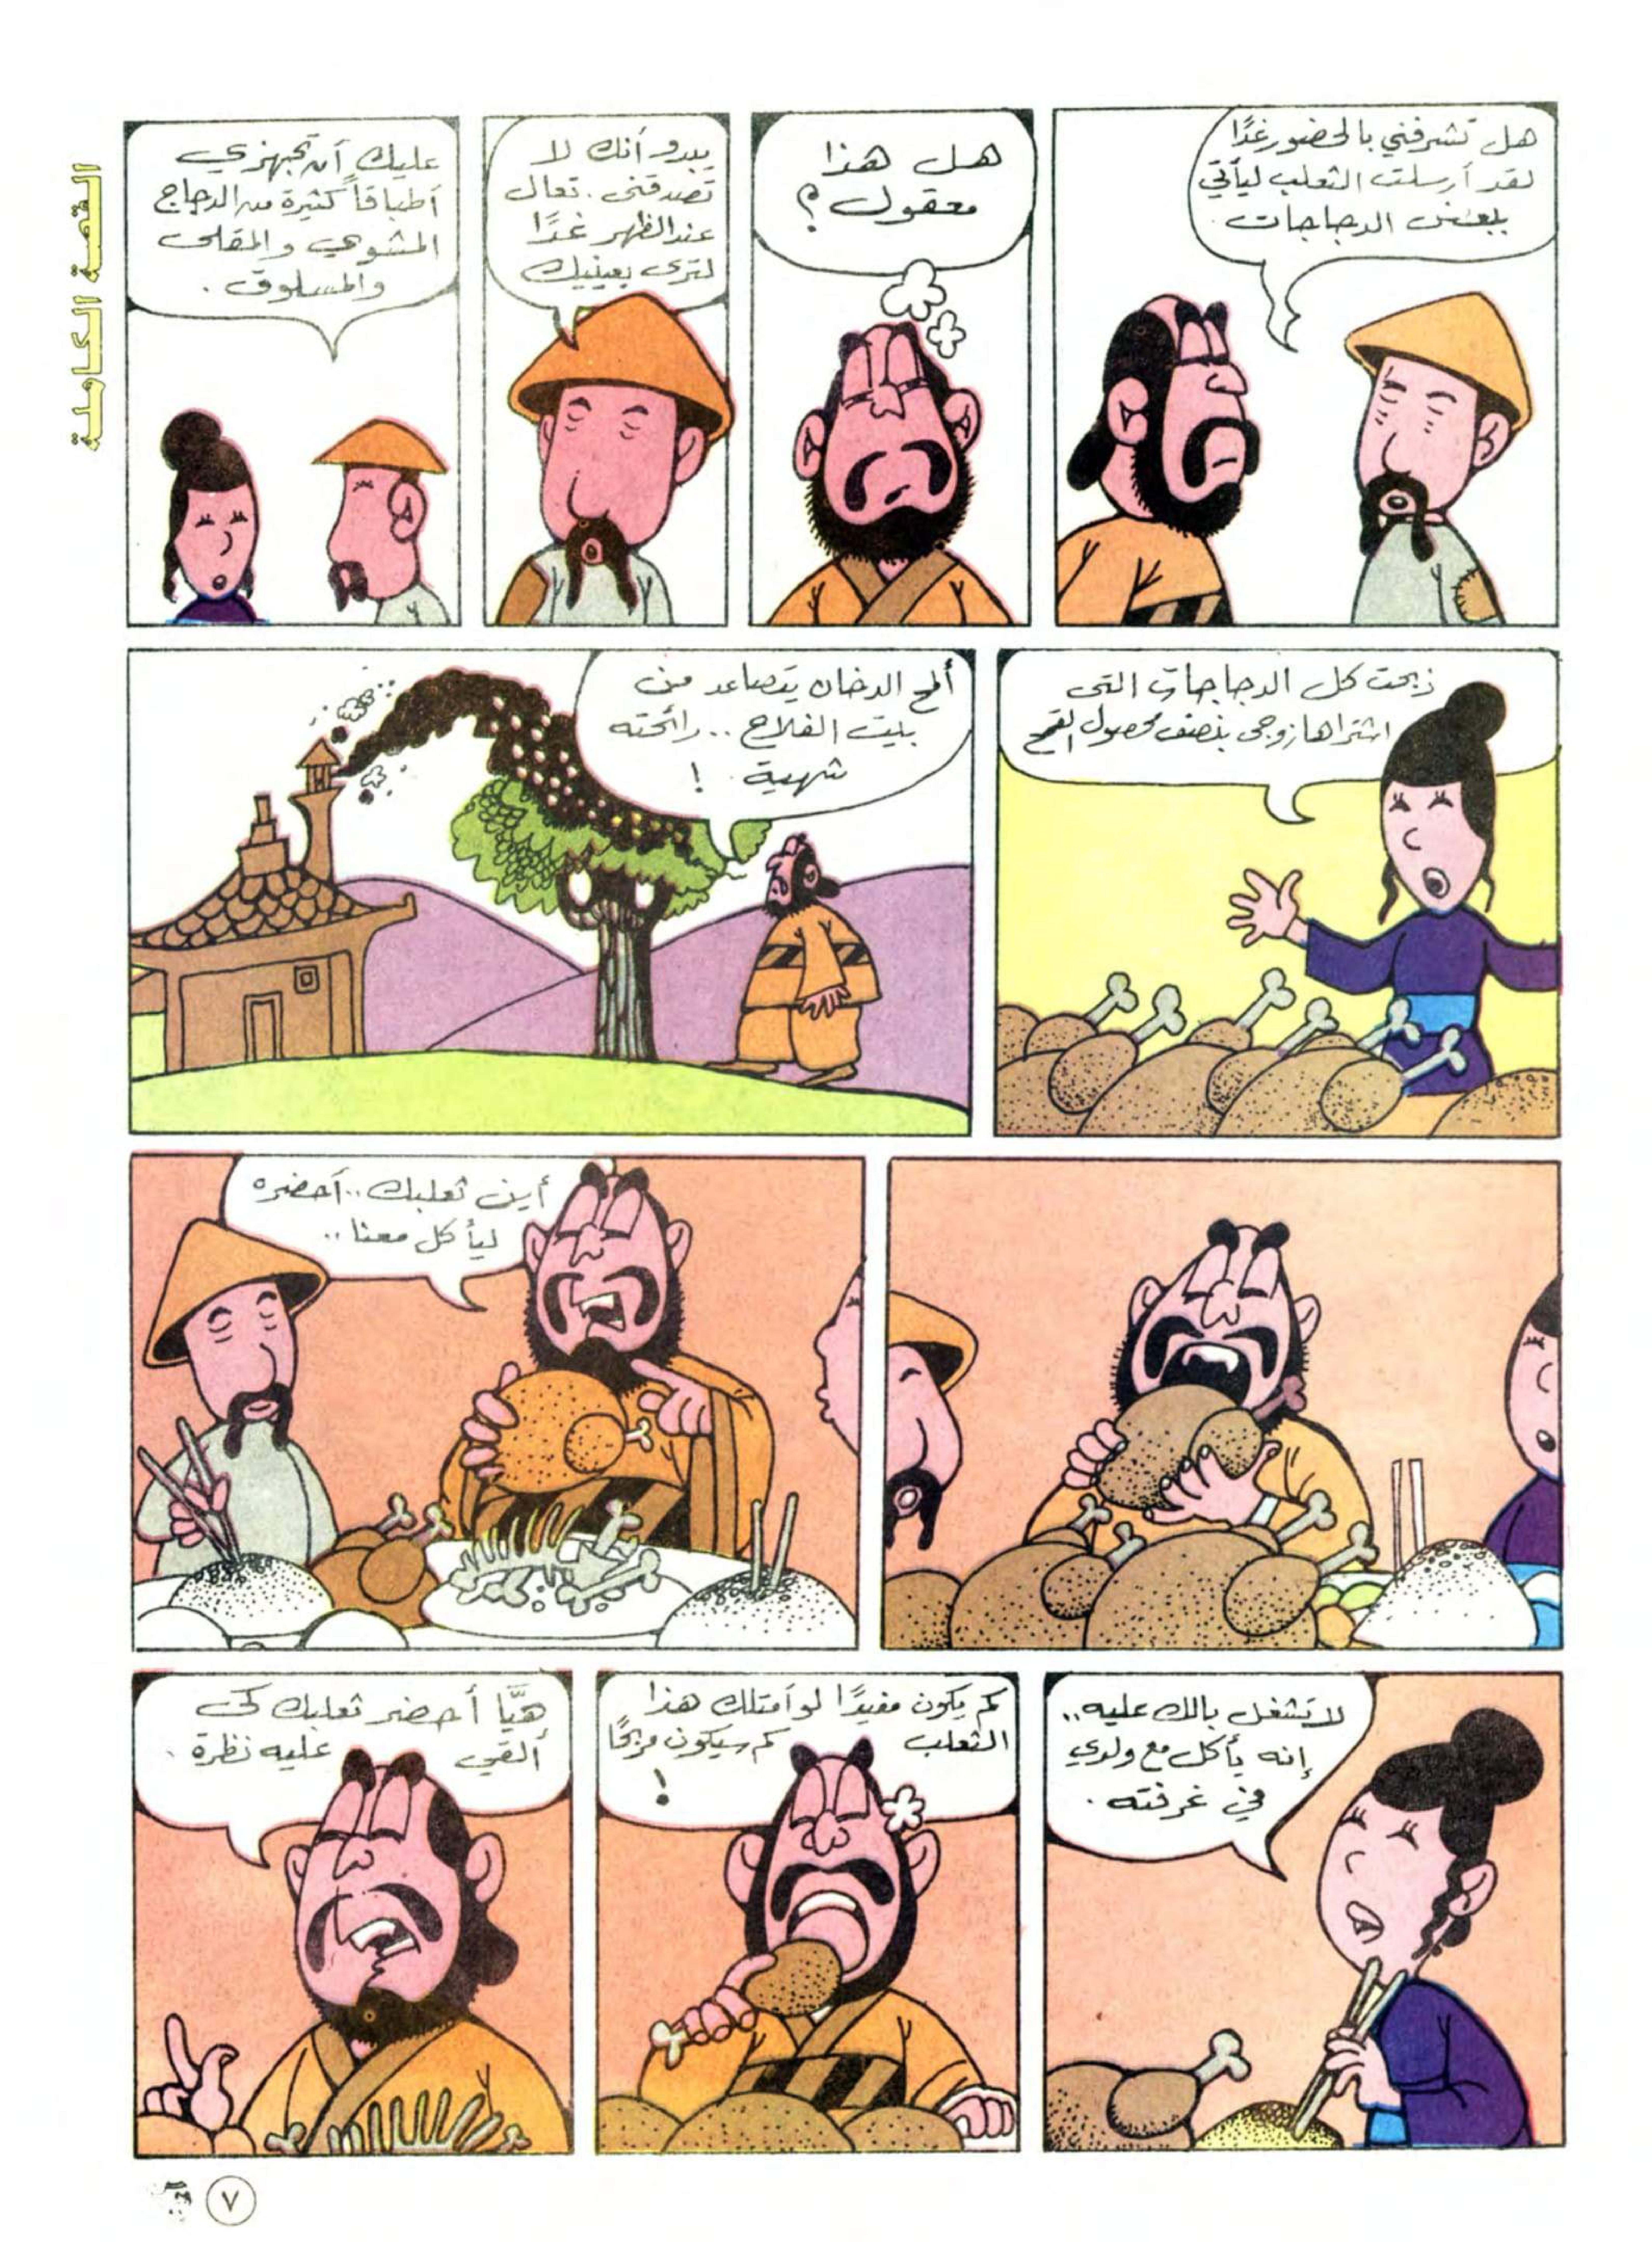 القصة الكاملة
هل تشرفني بالحضور غدًا
لقد أرسلت الثعلب ليأتي
ببعض الدجاجات.
هل هذا
معقول؟
يبدو أنك لا
تصدقنى. تعال
عند الظهر غدًا
لترى بعينيك
عليك أن تجهزي
أطباقاً كثيرة من الدجاج
المشوي والمقلى
والمسلوق.
ذبحت كل الدجاجات التى
اشتراها زوجى بنصف محصول القمح
ألمح الدخان يتصاعد من
بيت الفلاح .. رائحته
شهية !
أين ثعلبك .. أحضره
ليأكل معنا ..
لا تشغل بالك عليه ..
إنه يأكل مع ولدي
في غرفته .
كم يكون مفيدًا لو أمتلك هذا
الثعلب كم سيكون مربحًا
!
هيَّا أحضر ثعلبك كى
ألقي عليه نظرة .
٧